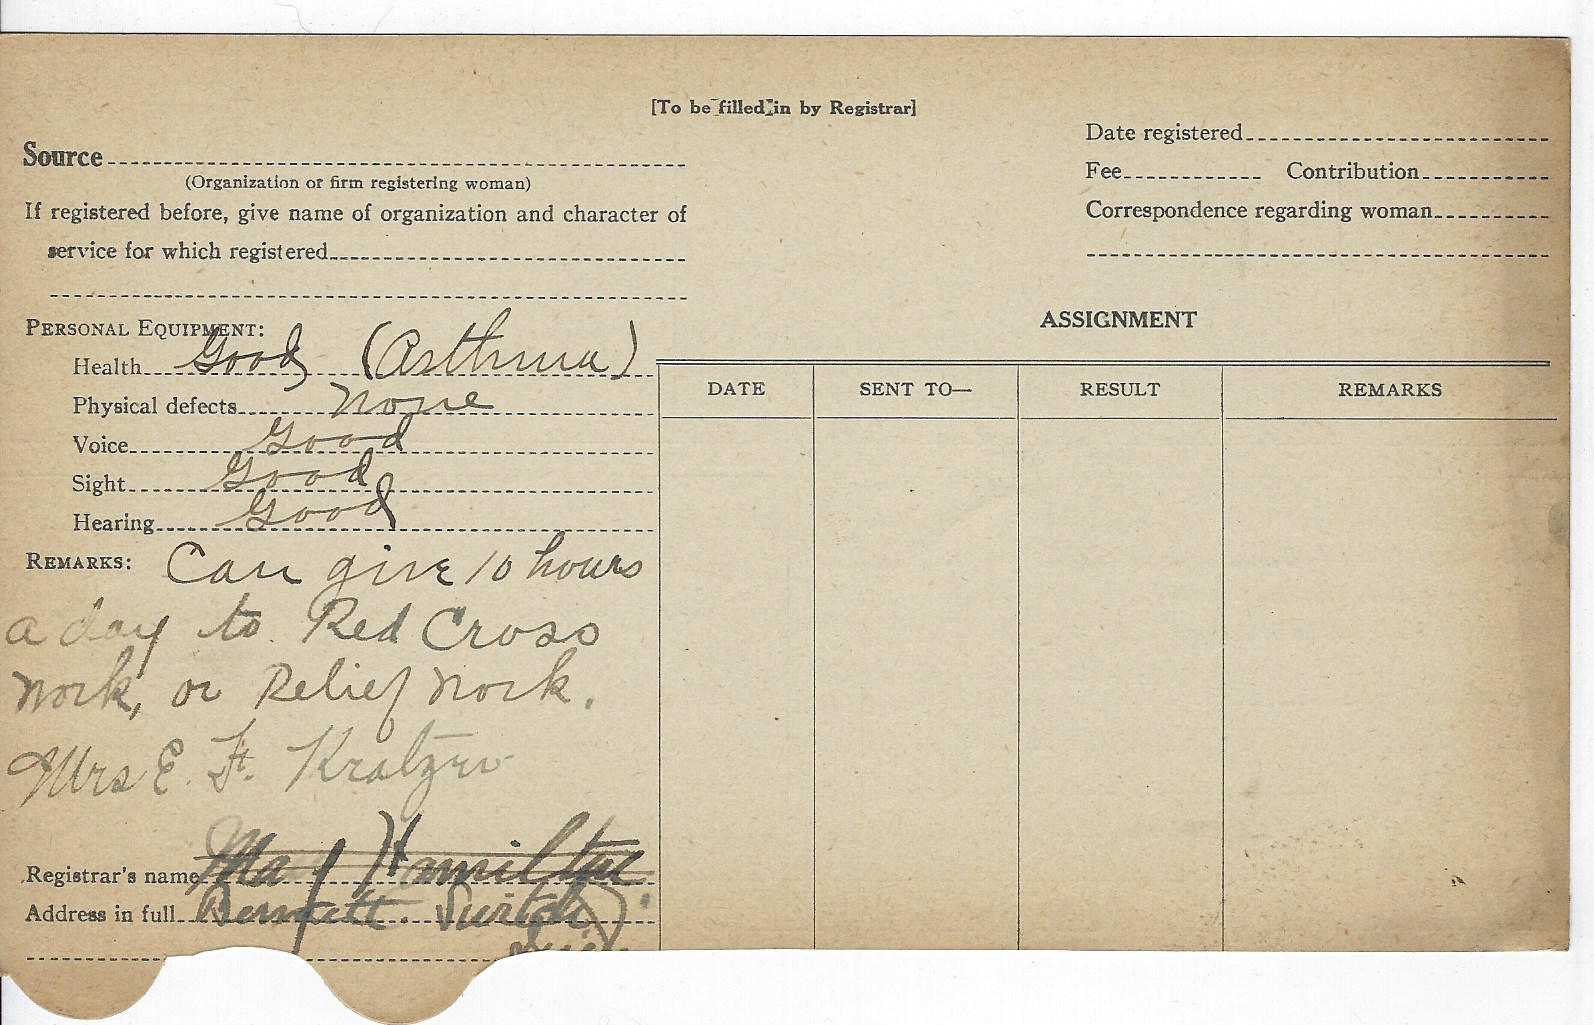 [To be filled in by Registrar]
Source
(Organization or firm registering woman)
If registered before, give name of organization and character of
service for which registered
Date registered
Fee Contribution
Correspondence regarding woman
PERSONAL EQUIPMENT:
Health Good (Asthma)
Physical defects None
Voice Good
Sight Good
Hearing Good
REMARKS: Can give 10 hours
a day to Red Cross
work, or Relief work.
Mrs E. F. Kratzer
Registrar's name May Hamilton
Address in full Bennett Switch
ASSIGNMENT
DATE SENT TO— RESULT REMARKS